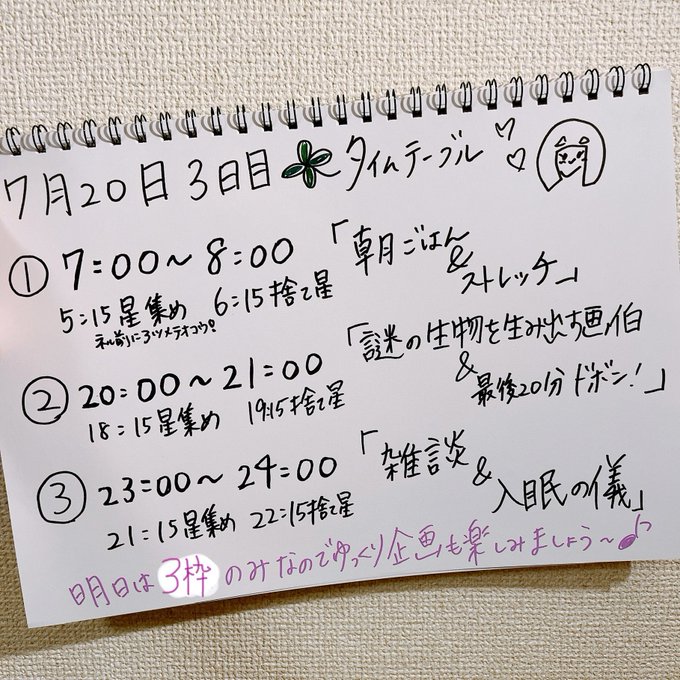 7月20日 3日目 タイムテーブル
① 7:00〜8:00 「朝ごはん & ストレッチ」
5:15星集め 6:15捨て星
ネル前に3ツメテオコウ!
② 20:00〜21:00 「謎の生物を生み出す画伯 & 最後20分ドボン!」
18:15星集め 19:15捨て星
③ 23:00〜24:00 「雑談 & 入眠の儀」
21:15星集め 22:15捨て星
明日は3枠のみなのでゆっくり企画も楽しみましょう〜♪